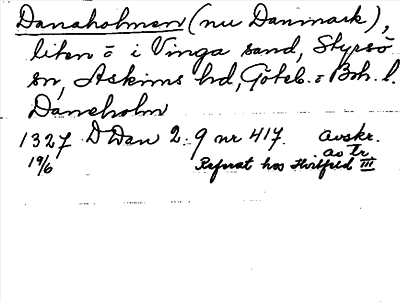 Danaholmen (nu Danmark),
liten ö i Vinga sand, Styrsö
sn, Askims hd, Göteb. o Boh. l.
Daneholm
1327 D Dan 2:9 nr 417. avskr.
av tr
19/6 Referat hos Hvitfeld III